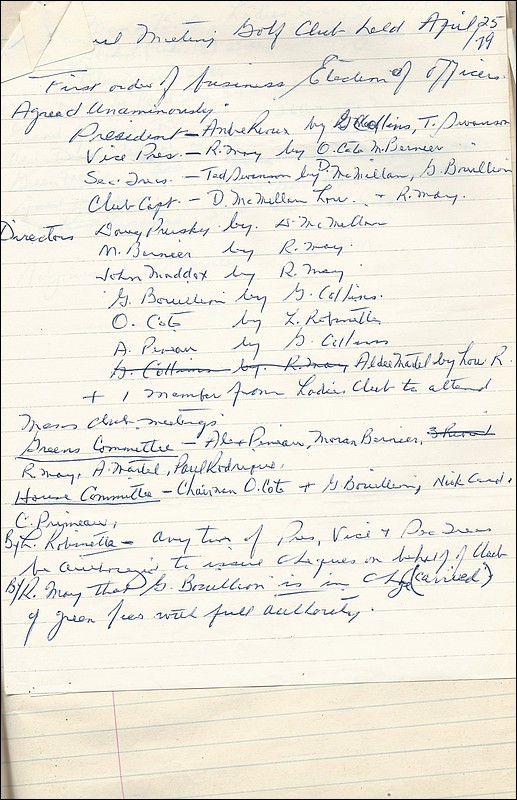 Meeting Golf Club held April 25/79
First order of business Election of officers.
Agreed Unaminously.
President - Andre Rioux by G Collins, T. Swanson
Vice Pres. - R. May by O. Cote M. Bernier
Sec. Treas. - Ted Swanson by D. McMillan, G. Bouillion
Club Capt - D. McMillan Low. + R. May.
Directors Doug Prusky by. D. McMillan
M. Bernier by R. May.
John Maddox by R. May
G. Bouillion by G. Collins.
O. Cote by L. Robinette
A. Pineau by G. Collins
G. Collins by. R. May Aldee Martel by Low R.
+ 1 member from Ladies Club to attend
Mens club meetings.
Greens Committee - Alex Pineau, Moran Bernier,
R. May, A. Martel, Paul Rodrique,
House Committee - Chairman O. Cote + G Bouillion, Nick
C. Primeau,
By L. Robinette - any two of Pres, Vice + Sec Treas
be authorized to issue cheques on behalf of Club
B/R. May that G. Bouillion is in chge (carried)
of green fees with full authority.